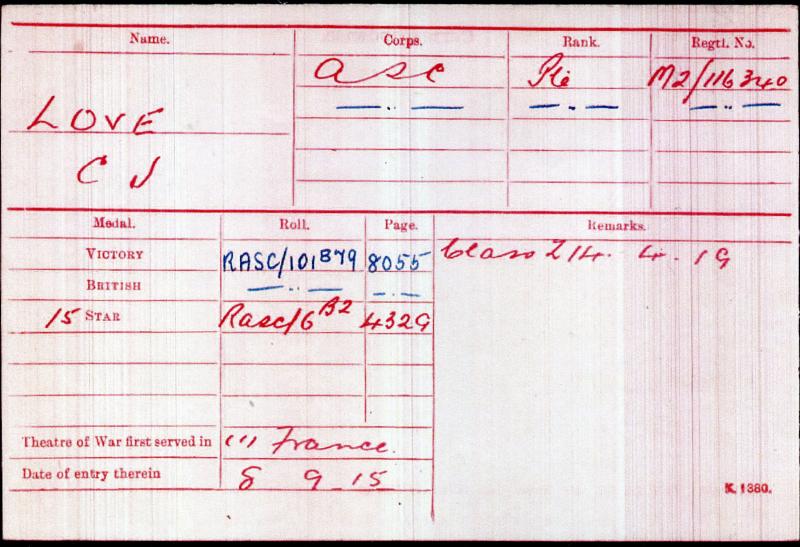 Name. Corps. Rank. Regtl. No.
ASC Pte M2/116340
— ·· — — ·· — — ·· —
LOVE
C J
Medal. Roll. Page. Remarks.
VICTORY RASC/101B79 8055 Class Z 14. 4. 19
BRITISH — ·· — — ·· —
15 STAR RASC/6B2 4329
Theatre of War first served in (1) France.
Date of entry therein 8 9-15
K. 1380.